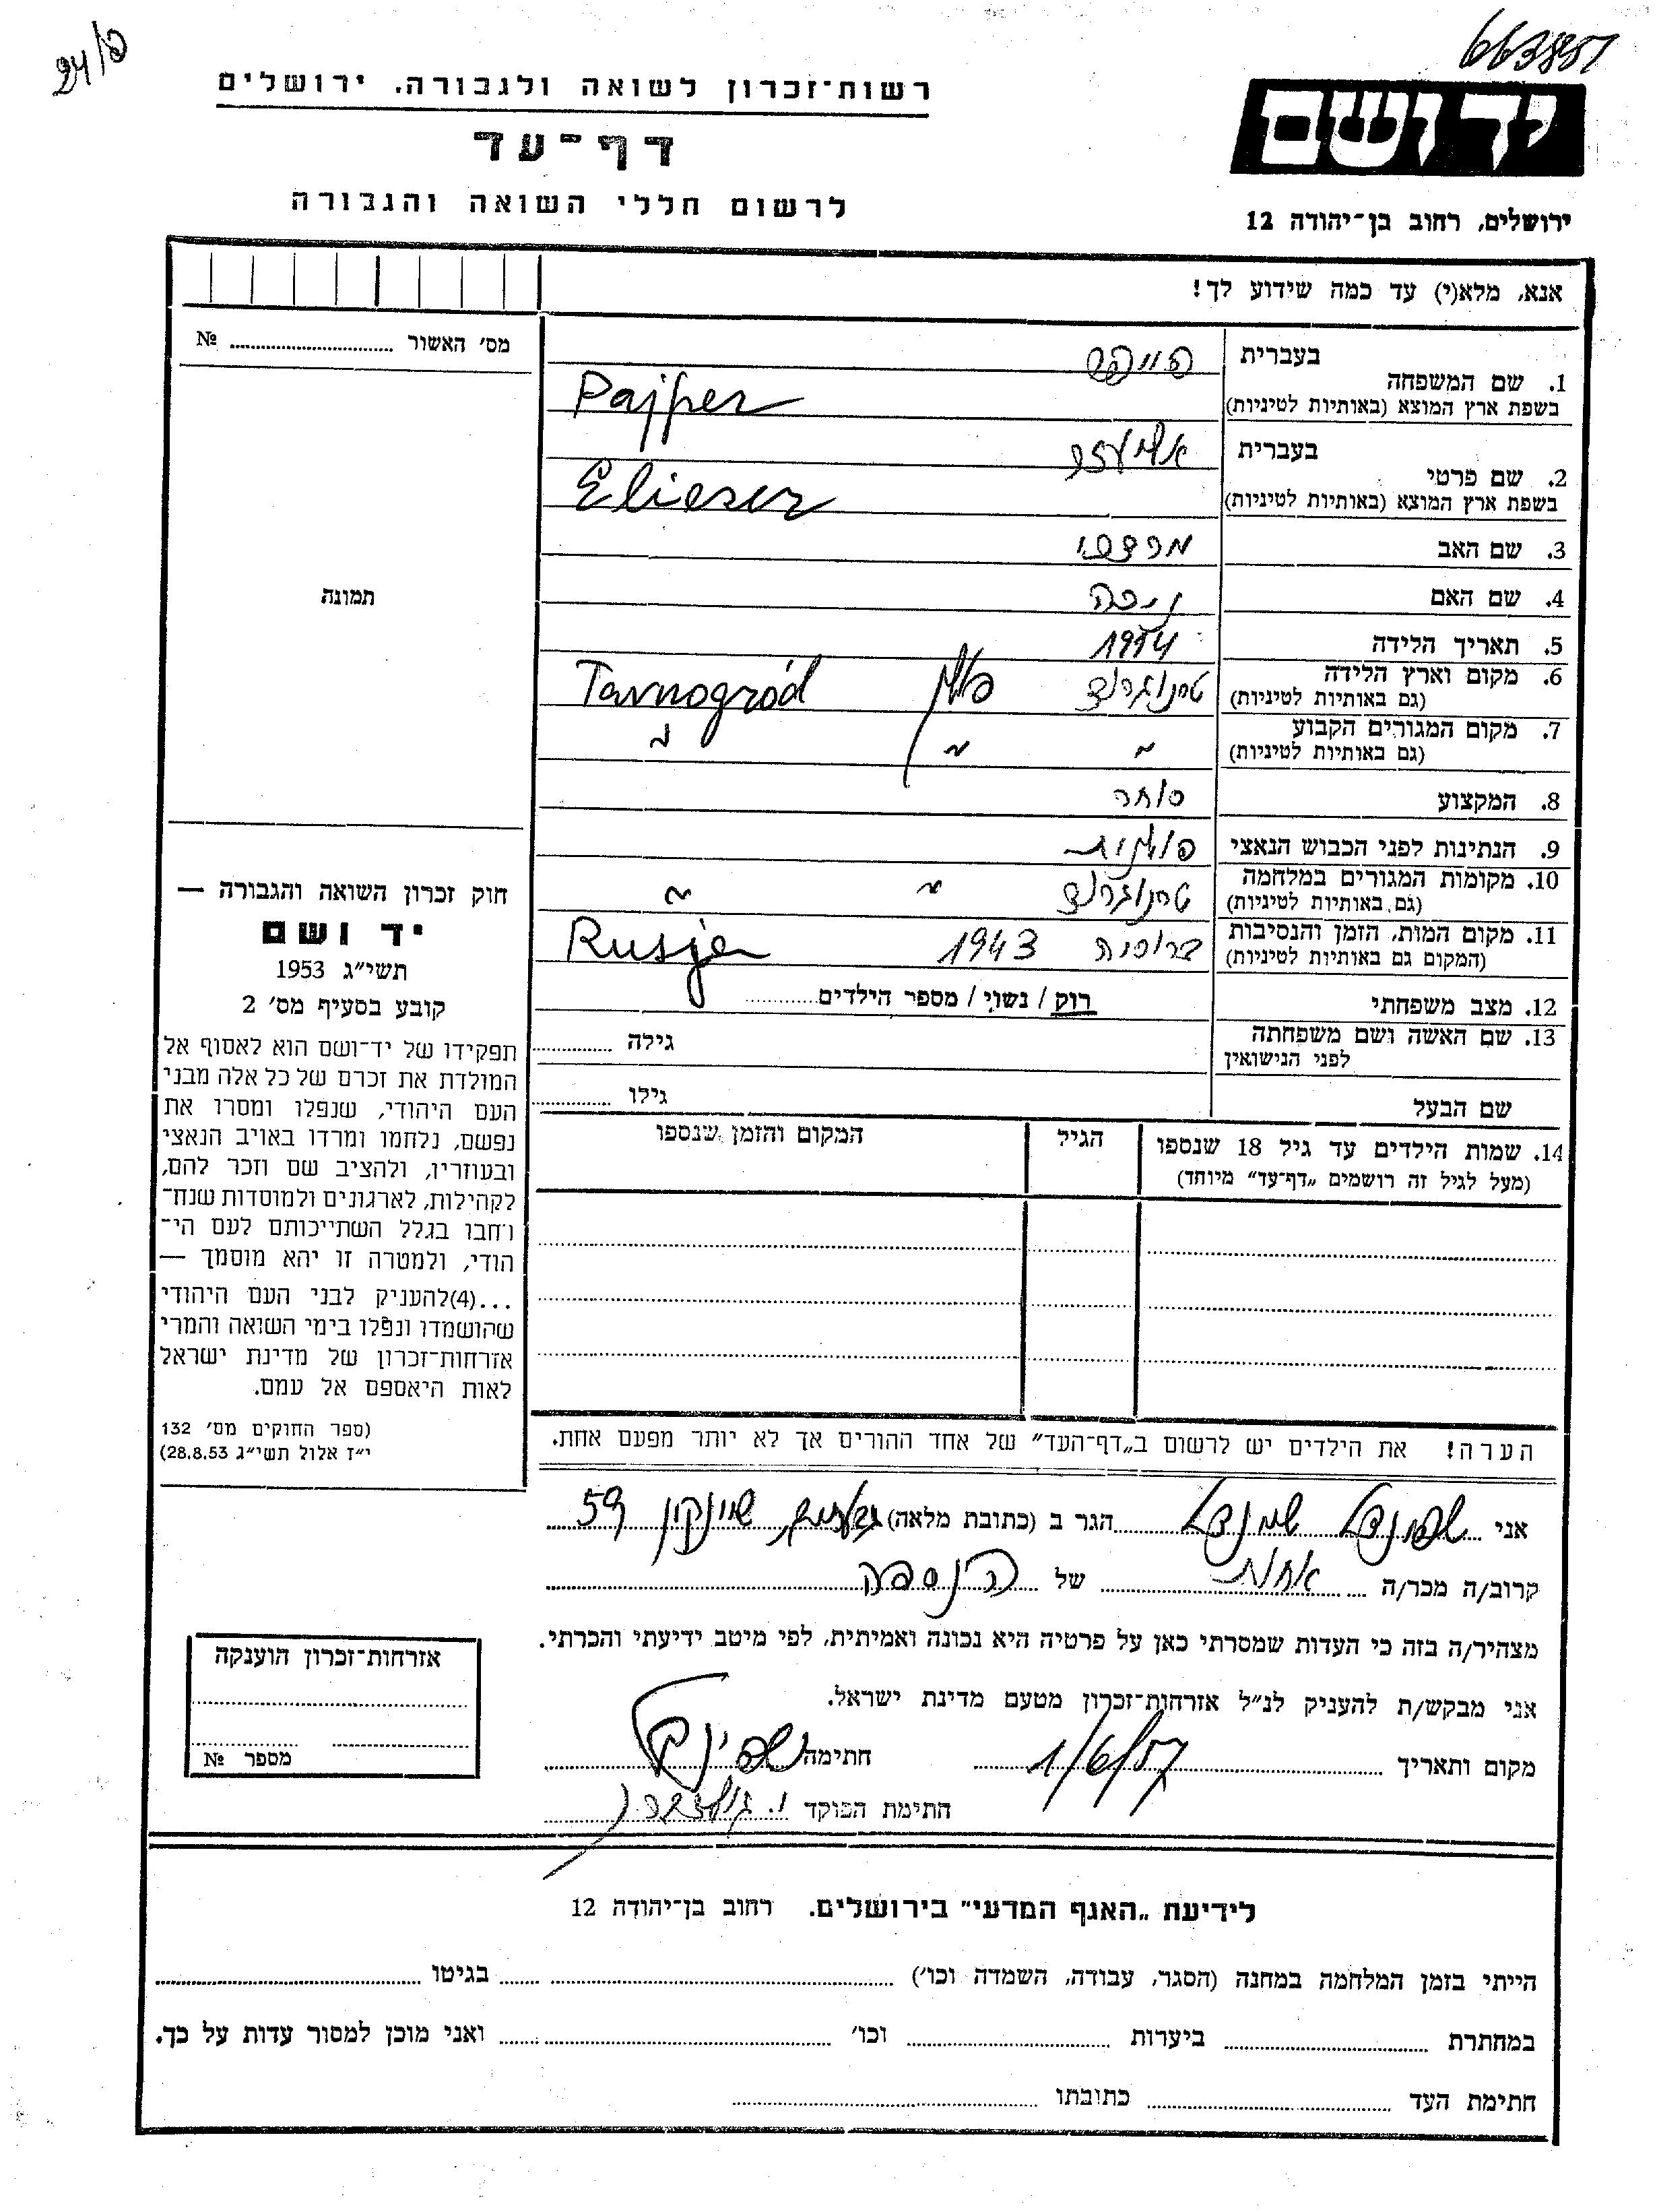 663851
24/פ
רשות־זכרון לשואה ולגבורה. ירושלים
דף־עד
לרשום חללי השואה והגבורה
יד ושם
ירושלים, רחוב בן־יהודה 12
אנא, מלא(י) עד כמה שידוע לך!
מס׳ האשור № 
תמונה
1. שם המשפחה בעברית פייפר
בשפת ארץ המוצא (באותיות לטיניות) Pajper
2. שם פרטי בעברית אליעזר
בשפת ארץ המוצא (באותיות לטיניות) Elieser
3. שם האב מרדכי
4. שם האם
5. תאריך הלידה
6. מקום וארץ הלידה טרנוגרוד פולין Tarnogród
(גם באותיות לטיניות)
7. מקום המגורים הקבוע " " "
(גם באותיות לטיניות)
8. המקצוע סוחר
9. הנתינות לפני הכבוש הנאצי פולנית
10. מקומות המגורים במלחמה טרנוגרוד " "
(גם באותיות לטיניות)
11. מקום המות, הזמן והנסיבות ברוסיה 1943 Rusja
(המקום גם באותיות לטיניות)
12. מצב משפחתי רוק / נשוי / מספר הילדים
13. שם האשה ושם משפחתה גילה
לפני הנישואין
שם הבעל גילו
14. שמות הילדים עד גיל 18 שנספו הגיל המקום והזמן שנספו
(מעל לגיל זה רושמים „דף־עד״ מיוחד)
הערה! את הילדים יש לרשום ב„דף־העד״ של אחד ההורים אך לא יותר מפעם אחת.
חוק זכרון השואה והגבורה —
יד ושם
תשי״ג 1953
קובע בסעיף מס׳ 2
תפקידו של יד־ושם הוא לאסוף אל
המולדת את זכרם של כל אלה מבני
העם היהודי, שנפלו ומסרו את
נפשם, נלחמו ומרדו באויב הנאצי
ובעוזריו, ולהציב שם וזכר להם,
לקהילות, לארגונים ולמוסדות שנח־
רחבו בגלל השתייכותם לעם הי־
הודי, ולמטרה זו יהא מוסמך —
...(4)להעניק לבני העם היהודי
שהושמדו ונפלו בימי השואה והמרי
אזרחות־זכרון של מדינת ישראל
לאות היאספם אל עמם.
(ספר החוקים מס׳ 132
י״ז אלול תשי״ג 28.8.53)
אני הגר ב (כתובת מלאה) שינקין 59
קרוב/ה מכר/ה אחות של הנספה
מצהיר/ה בזה כי העדות שמסרתי כאן על פרטיה היא נכונה ואמיתית, לפי מיטב ידיעתי והכרתי.
אני מבקש/ת להעניק לנ״ל אזרחות־זכרון מטעם מדינת ישראל.
מקום ותאריך 1/6/57 חתימה
חתימת הפוקד
אזרחות־זכרון הוענקה
מספר №
לידיעת „האגף המדעי״ בירושלים. רחוב בן־יהודה 12
הייתי בזמן המלחמה במחנה (הסגר, עבודה, השמדה וכו׳) בגיטו
במחתרת ביערות וכו׳ ואני מוכן למסור עדות על כך.
חתימת העד כתובתו